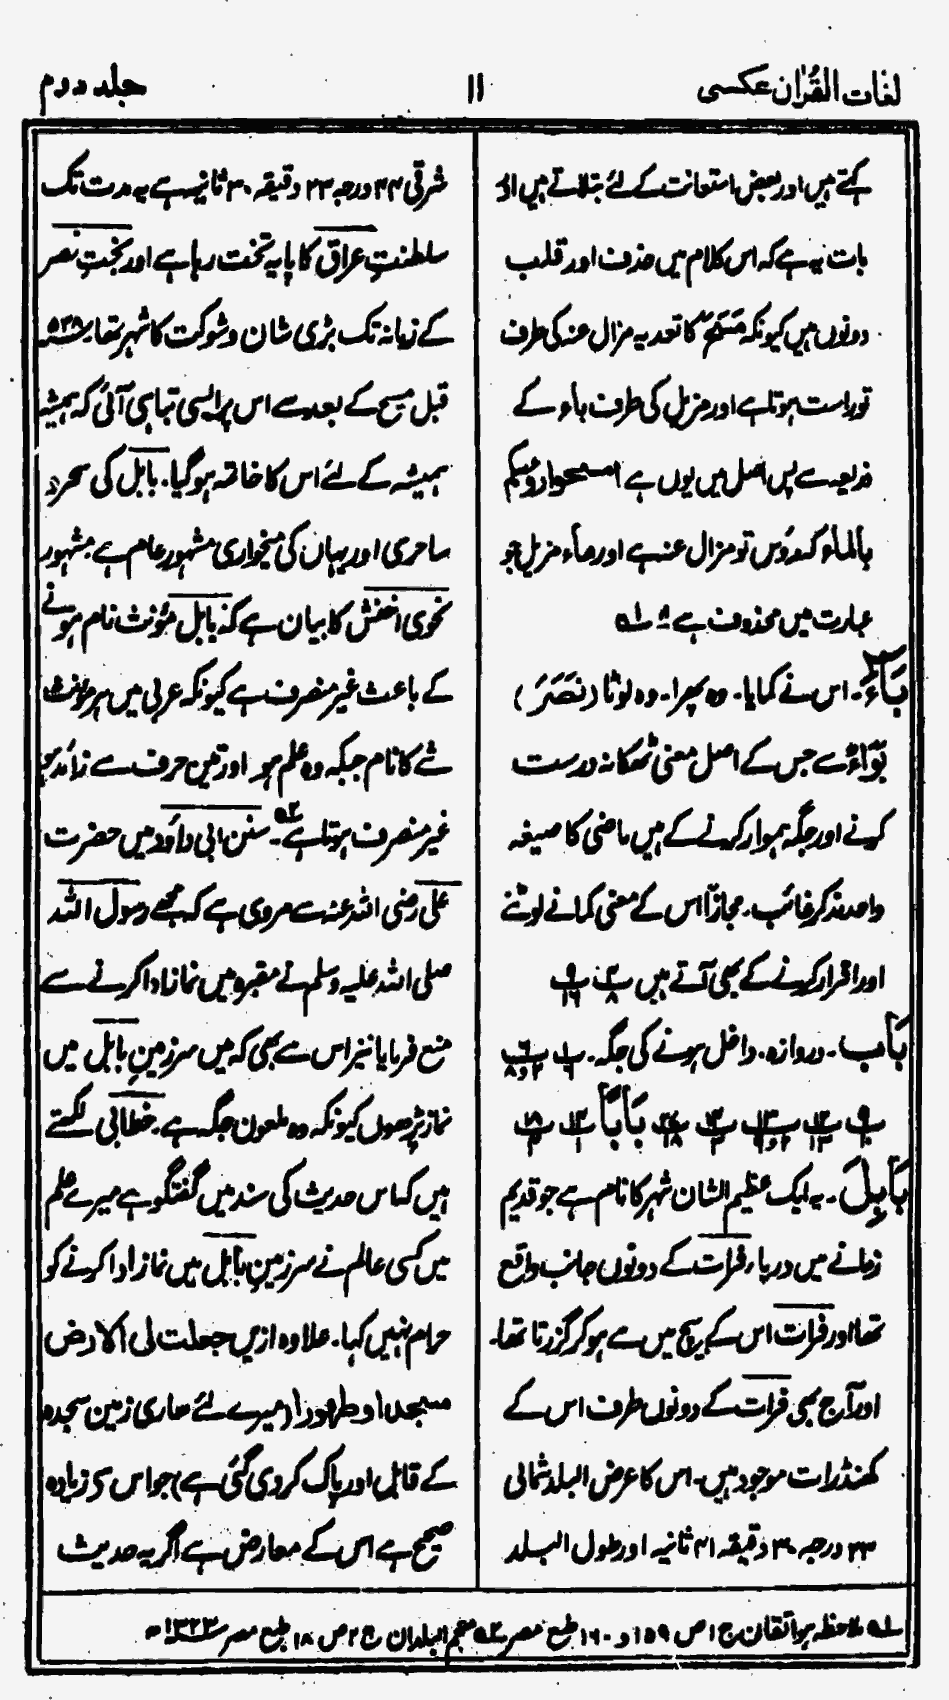 لغات القرآن عکسی
۱۱
جلد دوم
کہتے ہیں اور بعض استعانت کے لئے بتلاتے ہیں اور
بات یہ ہے کہ اس کلام میں حذف اور قلب
دونوں ہیں کیونکہ مَسَحَ کا تعدیہ مزال عنہ کی طرف
تو راست ہوتا ہے اور مزیل کی طرف باء کے
ذریعہ سے پس اصل میں یوں ہے امسحوا رؤسکم
بالماء کہ رؤس تو مزال عنہ ہے اور ماء مزیل جو
عبارت میں محذوف ہے
بَآءَ۔ اس نے کمایا۔ وہ پھرا۔ وہ لوٹا (نَصَرَ)
بَوَاءٌ سے جس کے اصل معنی ٹھکانہ درست
کرنے اور جگہ ہموار کرنے کے ہیں ماضی کا صیغہ
واحد مذکر غائب۔ مجازاً اس کے معنی کمانے لوٹنے
اور اقرار کرنے کے بھی آتے ہیں
بَاب۔ دروازہ۔ داخل ہونے کی جگہ۔
بَابًا
بَابِلَ۔ یہ ایک عظیم الشان شہر کا نام ہے جو قدیم
زمانے میں دریاء فرات کے دونوں جانب واقع
تھا اور فرات اس کے بیچ میں سے ہو کر گزرتا تھا۔
اور آج بھی فرات کے دونوں طرف اس کے
کھنڈرات موجود ہیں۔ اس کا عرض البلد شمالی
۳۳ درجہ ۳۰ دقیقہ ۳۱ ثانیہ اور طول البلد
شرقی ۴۴ درجہ ۲۳ دقیقہ ۳۰ ثانیہ ہے یہ مدت تک
سلطنتِ عراق کا پایہ تخت رہا ہے اور بختِ نصر
کے زمانہ تک بڑی شان و شوکت کا شہر تھا۔ ۵۳۸
قبل مسیح کے بعد سے اس پر ایسی تباہی آئی کہ ہمیشہ
ہمیشہ کے لئے اس کا خاتمہ ہو گیا۔ بابل کی سحر و
ساحری اور یہاں کی میخواری مشہور عام ہے مشہور
نحوی اخفش کا بیان ہے کہ بابل مؤنث نام ہونے
کے باعث غیر منصرف ہے کیونکہ عربی میں ہر مؤنث
شے کا نام جبکہ وہ علم ہو اور تین حرف سے زائد ہو
غیر منصرف ہوتا ہے۔ سنن ابی داؤد میں حضرت
علی رضی اللہ عنہ سے مروی ہے کہ مجھے رسول اللہ
صلی اللہ علیہ وسلم نے مقبرہ میں نماز ادا کرنے سے
منع فرمایا نیز اس سے بھی کہ میں سرزمینِ بابل میں
نماز پڑھوں کیونکہ وہ ملعون جگہ ہے۔ خطابی لکھتے
ہیں کہ اس حدیث کی سند میں گفتگو ہے میرے علم
میں کسی عالم نے سرزمینِ بابل میں نماز ادا کرنے کو
حرام نہیں کہا۔ علاوہ ازیں جعلت لی الارض
مسجدا و طھورا (میرے لئے ساری زمین سجدہ
کے قابل اور پاک کر دی گئی ہے) جو اس سے زیادہ
صحیح ہے اس کے معارض ہے اگر یہ حدیث
۱ھ ملاحظہ ہو اتقان ج ۱ ص ۱۵۹ و ۱۶۰ طبع مصر ۲ھ معجم البلدان ج ۲ ص ۱۸ طبع مصر ۱۳۲۳ھ